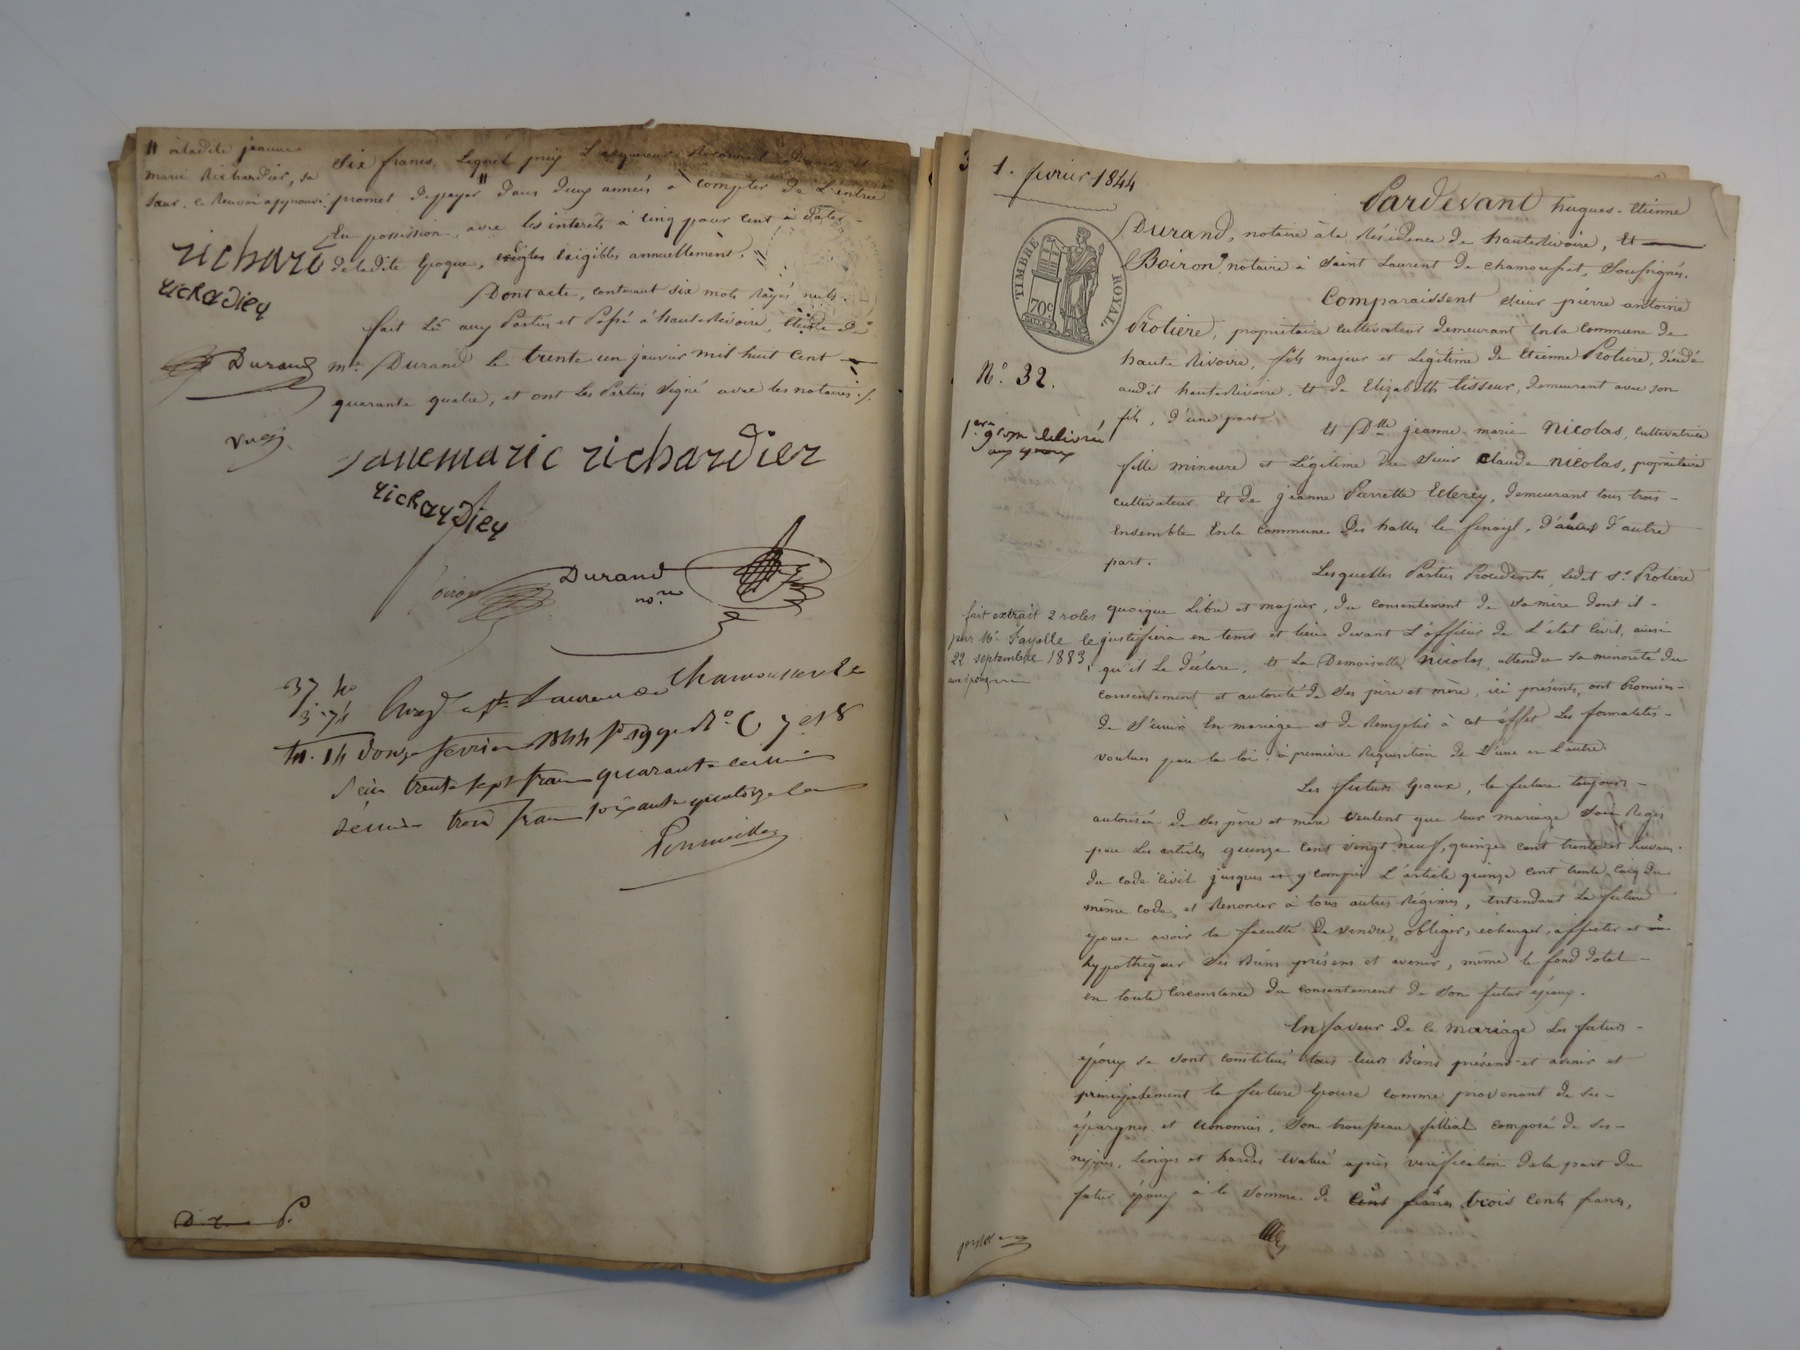 # à ladite jeanne
marie Richardier, sa
sœur, ce Renvoi approuvé.
richard
richardier
Durand
six francs. Lequel prix L'acquéreur
promet de payer # dans deux années à compter de L'entrée
En possession, avec les intérêts à cinq pour cent à dater
de ladite Epoque, exigibles annuellement.
Dont acte, contenant six mots rayés nuls.
fait Lu aux Parties et Passé à hauterivoire, Etude de
me. Durand le trente un janvier mil huit cent
quarante quatre, et ont Les Parties signé avec les notaires ./.
janemaric richardier
richardier
Durand
nore
37 40
3 74
Enregé à St. Laurent de Chamousset le
douze février 1844 fo 199 Ro C 7 et 8
Reçu trente sept francs quarante centimes
décime trois francs soixante quatorze
1. février 1844
Pardevant hugues-Etienne
Durand, notaire à la Résidence de hauterivoire, Et
Boiron, notaire à Saint Laurent de Chamousset, Soussignés.
TIMBRE ROYAL
70c
Comparaissent sieur pierre antoine
Protière, propriétaire cultivateur demeurant en la commune de
haute Rivoire, fils majeur et Légitime de Etienne Protière, décédé
audit hauterivoire, Et de Elizabeth Lisseur, demeurant avec son
fils, d'une part.
No. 32.
1ere grosse délivrée
aux époux
Et Dlle jeanne-marie Nicolas, cultivatrice
fille mineure et Légitime du sieur Claude Nicolas, propriétaire
cultivateur Et de jeanne Pierrette, demeurant tous trois
Ensemble En la commune des halles le fenoyl, d'autre
part.
Lesquelles Parties Procédentes, Ledit sr. Protière
quoique Libre et majeur, du consentement de sa mère dont il
justifiera en tems et lieu devant L'officier de L'état Civil, ainsi
qu'il Le déclare, Et La Demoiselle Nicolas, attendu sa minorité du
consentement et autorité de ses père et mère, ici présents, ont Promis
de s'unir En mariage et de Remplir à cet effet Les formalités
voulues par la loi à première Réquisition de L'une ou L'autre.
fait extrait 2 roles
par Me. Fayolle le
22 septembre 1883,
Les futurs Epoux, la future toujours
autorisée de ses père et mère veulent que leur mariage soit Régi
par Les articles quinze cent vingt neuf, quinze cent trente et suivans
du code Civil jusques et y compris L'article quinze cent trente cinq du
même code, et Renoncer à tous autres Régimes, Entendant La future
épouse avoir la faculté de vendre, obliger, échanger, affecter et
hypothéquer ses Biens présens et avenir, même le fond dotal
en toute Circonstance du consentement de son futur époux.
En faveur de ce mariage Les futurs
époux se sont constitués tous leurs Biens présens et avenir et
principalement la future Epouse comme provenant de ses
épargnes et économies, son trousseau fillial composé de ses
nippes, Linges et hardes Evalué après vérification de la part du
futur époux à la somme de cent francs trois cents francs,